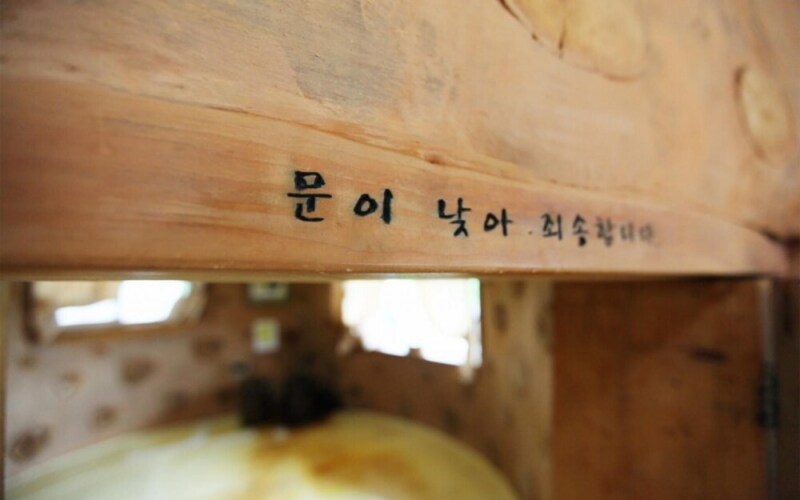 문이 낮아. 죄송합니다